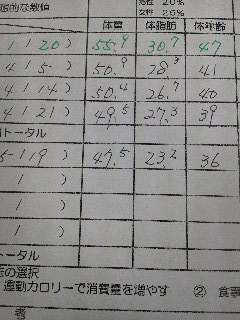 的な数値
男性 20%
女性 25%
体重 体脂肪 体年齢
1 / 20 ) 55.9 30.7 47
4 / 5 ) 50.9 28.3 41
4 / 14 ) 50.4 26.7 40
4 / 21 ) 49.5 27.3 39
トータル
5 / 19 ) 47.5 23.2 36
/ )
/ )
/ )
トータル
の選択
運動カロリーで消費量を増やす ② 食事
考